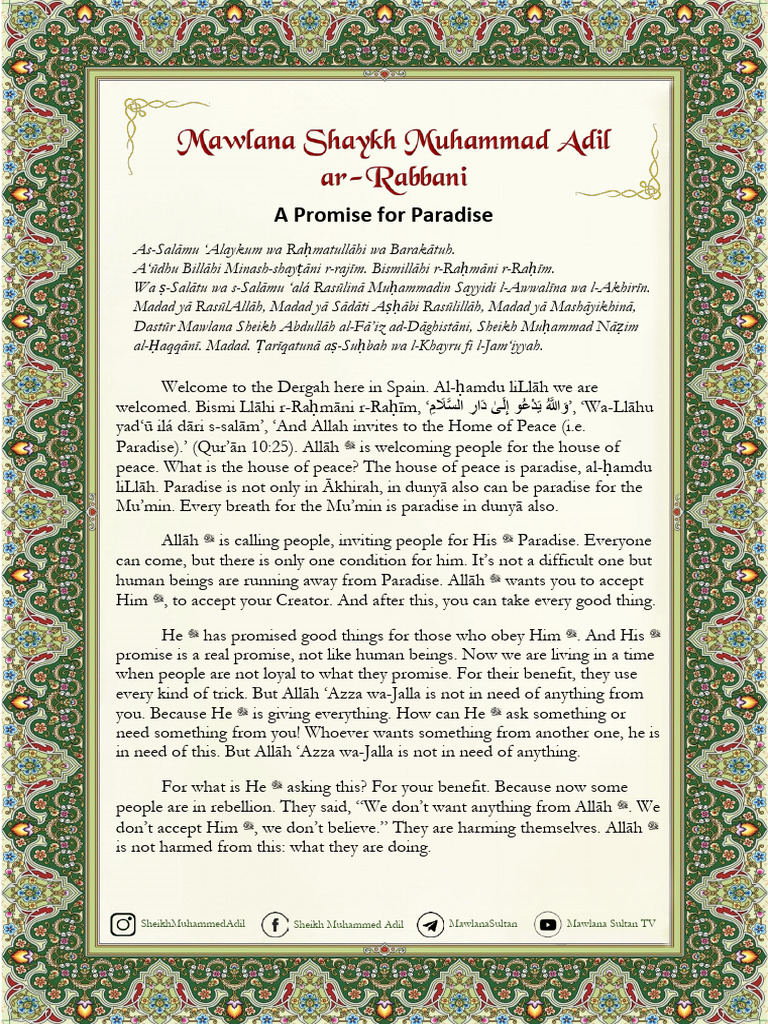 Mawlana Shaykh Muhammad Adil
ar-Rabbani
A Promise for Paradise
As-Salāmu ‘Alaykum wa Raḥmatullāhi wa Barakātuh.
A‘ūdhu Billāhi Minash-shayṭāni r-rajīm. Bismillāhi r-Raḥmāni r-Raḥīm.
Wa ṣ-Salātu wa s-Salāmu ‘alá Rasūlinā Muḥammadin Sayyidi l-Awwalīna wa l-Akhirīn.
Madad yā RasūlAllāh, Madad yā Sādāti Aṣḥābi Rasūlillāh, Madad yā Mashāyikhinā,
Dastūr Mawlana Sheikh Abdullāh al-Fā’iz ad-Dāghistāni, Sheikh Muḥammad Nāẓim
al-Ḥaqqānī. Madad. Ṭarīqatunā aṣ-Suḥbah wa l-Khayru fi l-Jam‘iyyah.
Welcome to the Dergah here in Spain. Al-ḥamdu liLlāh we are
welcomed. Bismi Llāhi r-Raḥmāni r-Raḥīm, ‘وَاللَّهُ يَدْعُو إِلَىٰ دَارِ السَّلَامِ’, ‘Wa-Llāhu
yad‘ū ilá dāri s-salām’, ‘And Allah invites to the Home of Peace (i.e.
Paradise).’ (Qur’ān 10:25). Allāh ﷻ is welcoming people for the house of
peace. What is the house of peace? The house of peace is paradise, al-ḥamdu
liLlāh. Paradise is not only in Ākhirah, in dunyā also can be paradise for the
Mu’min. Every breath for the Mu’min is paradise in dunyā also.
Allāh ﷻ is calling people, inviting people for His ﷻ Paradise. Everyone
can come, but there is only one condition for him. It’s not a difficult one but
human beings are running away from Paradise. Allāh ﷻ wants you to accept
Him ﷻ, to accept your Creator. And after this, you can take every good thing.
He ﷻ has promised good things for those who obey Him ﷻ. And His ﷻ
promise is a real promise, not like human beings. Now we are living in a time
when people are not loyal to what they promise. For their benefit, they use
every kind of trick. But Allāh ‘Azza wa-Jalla is not in need of anything from
you. Because He ﷻ is giving everything. How can He ﷻ ask something or
need something from you! Whoever wants something from another one, he is
in need of this. But Allāh ‘Azza wa-Jalla is not in need of anything.
For what is He ﷻ asking this? For your benefit. Because now some
people are in rebellion. They said, “We don’t want anything from Allāh ﷻ. We
don’t accept Him ﷻ, we don’t believe.” They are harming themselves. Allāh ﷻ
is not harmed from this: what they are doing.
SheikhMuhammedAdil Sheikh Muhammed Adil MawlanaSultan Mawlana Sultan TV